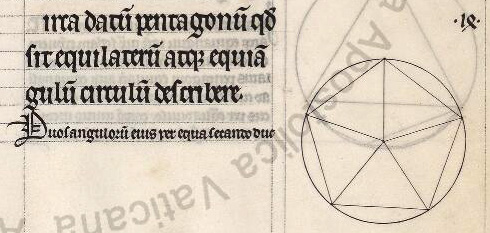 ·ıx·
irca datū pentagonū qđ
sit equilaterū atqꝫ equiā
gulū circulū describere.
Duos angulorū eius per equa secanto duc
Apostolica Vaticana